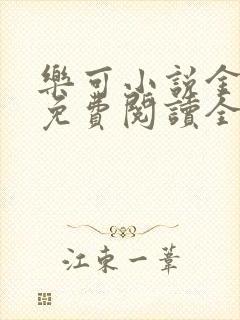 樂可小說全
免費閱讀全
江東一葦